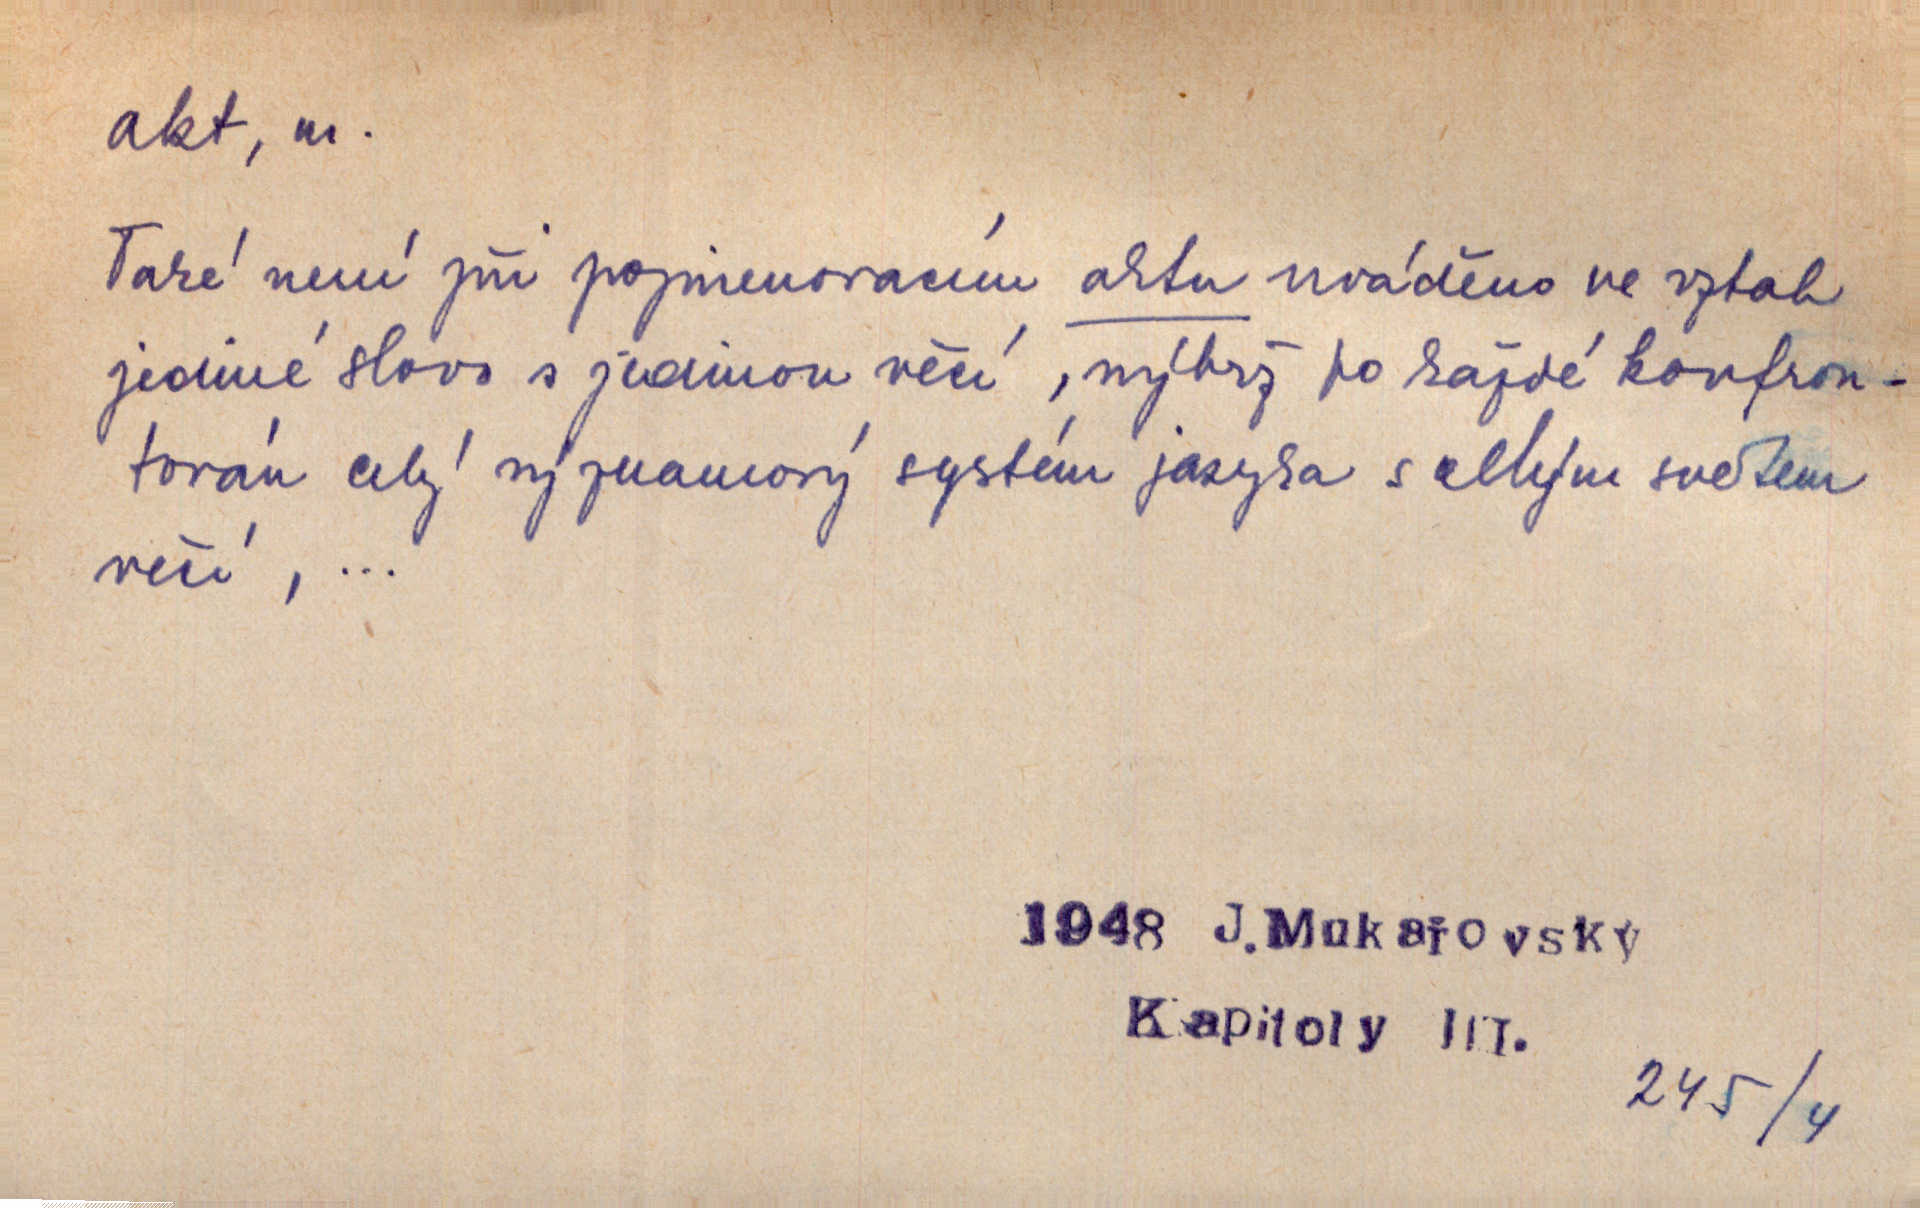 akt, m.
Také není při pojmenovacím aktu uváděno ve vztah
jediné slovo s jedinou věcí, nýbrž po každé konfron-
tován celý významový systém jazyka s celým světem
věcí, ...
1948 J. Mukařovský
Kapitoly III.
245/4